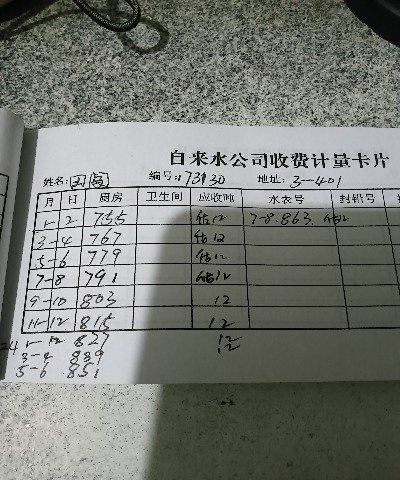 自来水公司收费计量卡片
姓名: 编号:173130 地址: 3-401
月 日 厨房 卫生间 应收吨 水衣号 封铅号
1-2 755 估12 7-8.863. 估12
3-4 767 估12
5-6 779 估12
7-8 791 估12
9-10 803 12
11-12 815 12
24 1-12 827 12
3-4 839
5-6 851